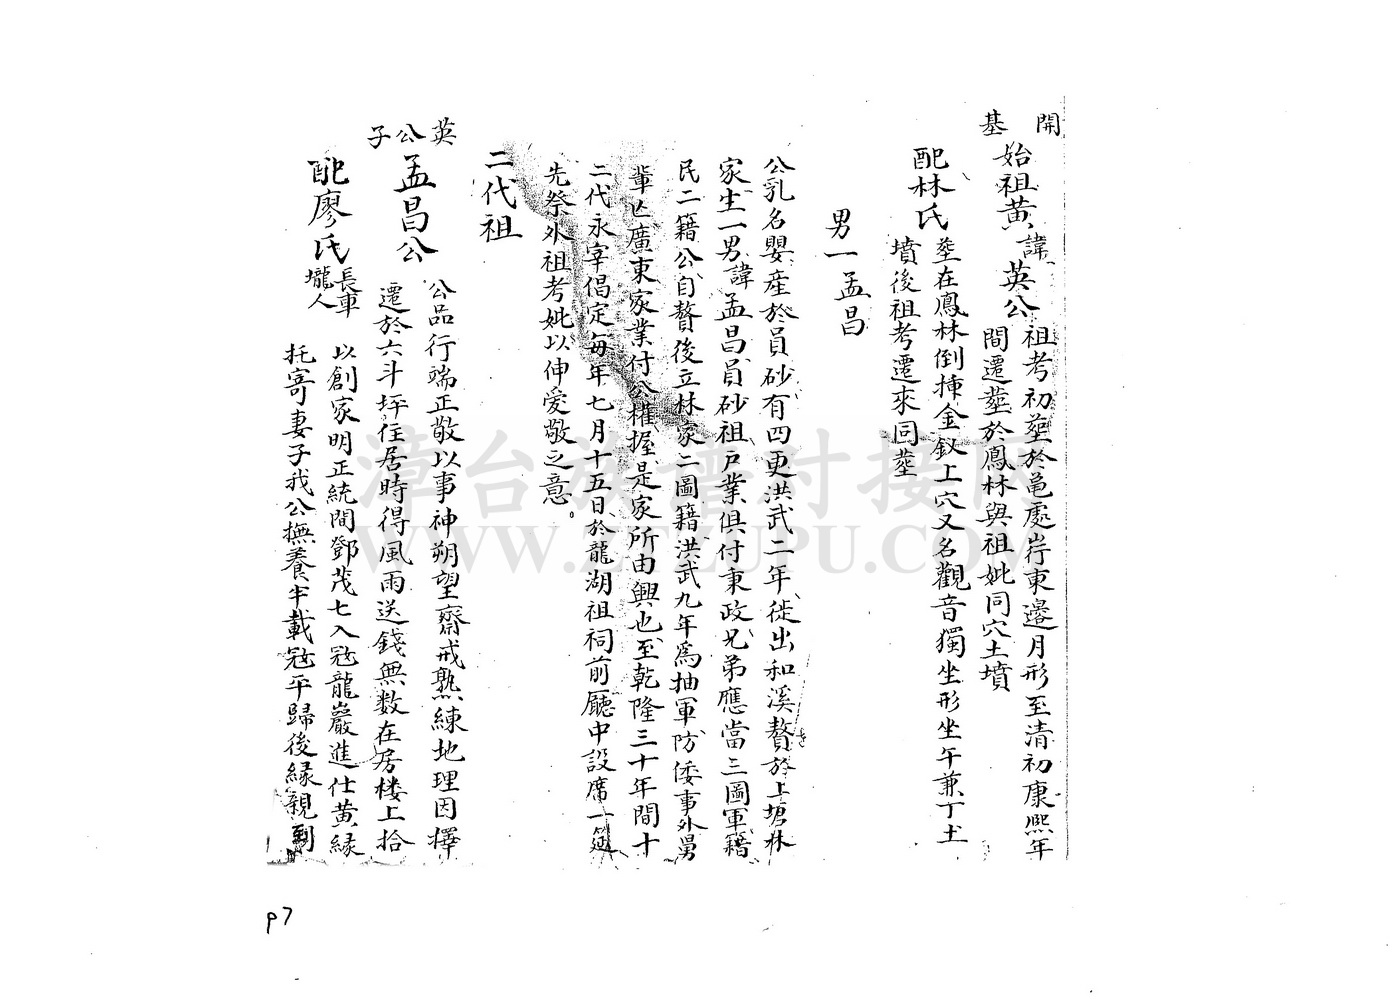 開基
始祖黃諱英公
祖考初塟於龜處岸東邊月形至清初康熙年
間遷塟於鳳林與祖妣同穴土墳
配林氏
塟在鳳林倒揷金釵上穴又名觀音獨坐形坐午兼丁土
墳後祖考遷來同塟
男一孟昌
公乳名嬰產於員砂有四更洪武二年徙出和溪贅於上塘林
家生一男諱孟昌員砂祖戶業俱付秉政兄弟應當三圖軍籍
民二籍公自贅後立林家二圖籍洪武九年為抽軍防倭事外舅
輩亡廣東家業付公權握是家所由興也至乾隆三十年間十
二代永宰倡定每年七月十五日於龍湖祖祠前廳中設席一筵
先祭外祖考妣以伸愛敬之意。
二代祖
英公子
孟昌公
公品行端正敬以事神朔望齋戒熟練地理因擇
遷於六斗坪住居時得風雨送錢無数在房楼上拾
配廖氏
長車壠人
以創家明正統間鄧茂七入冦龍巖進仕黃緣
托寄妻子我公撫養半載冦平歸後緣親到
漳台族譜对接网
WWW.ZTZUPU.COM
p7